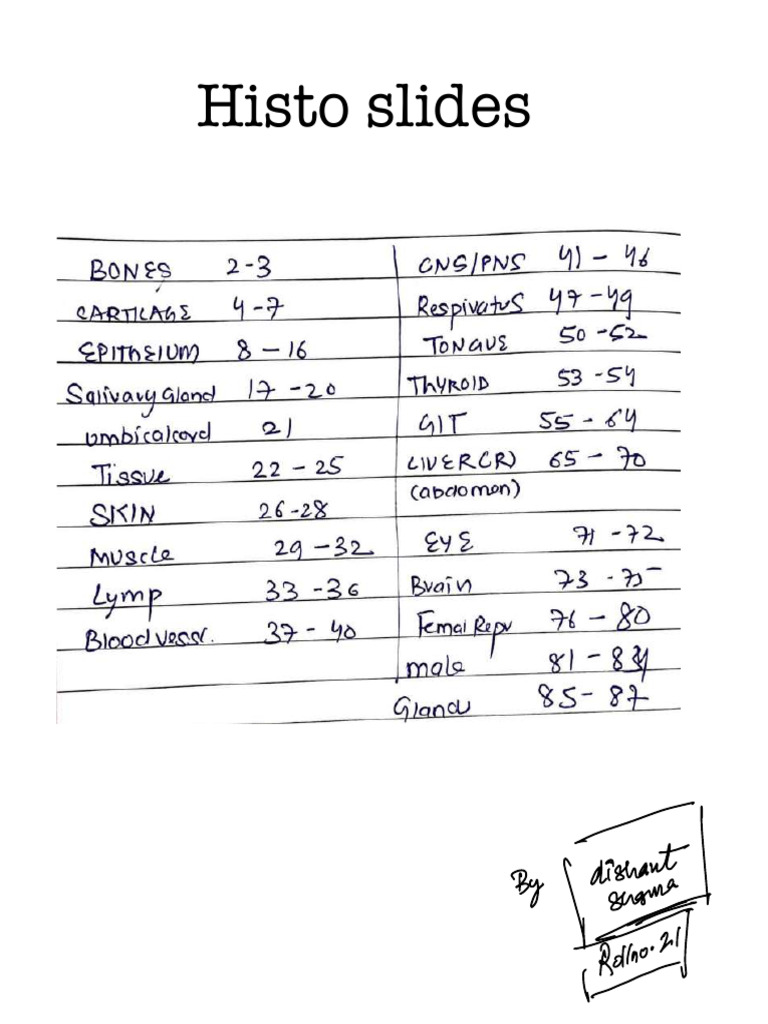 Histo slides
BONES 2-3
CARTILAGE 4-7
EPITHEIUM 8-16
Salivary Gland 17-20
umbical cord 21
Tissue 22-25
SKIN 26-28
Muscle 29-32
Lymp 33-36
Blood vessr. 37-40
CNS/PNS 41-46
Respivatus 47-49
TONGUE 50-52
THYROID 53-54
GIT 55-64
LIVER(R) 65-70
(abdomen)
EYE 71-72
Brain 73-75
Femal Repr 76-80
male 81-84
Gland 85-87
By
dishant
Rollno.21